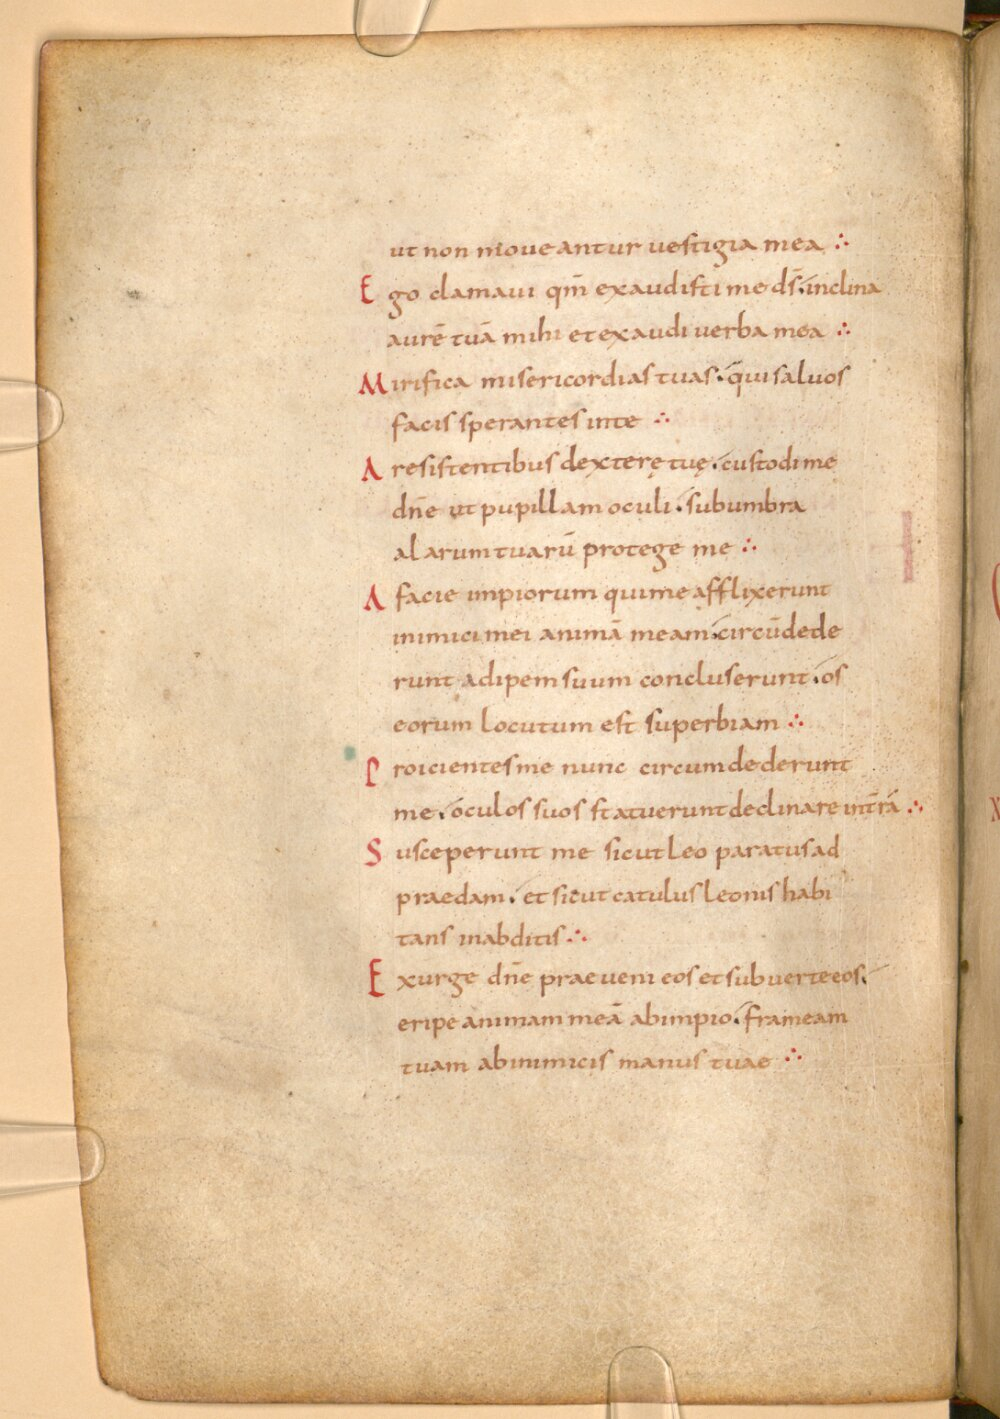 ut non moveantur vestigia mea ∴
Ego clamavi qm̄ exaudisti me ds̄ inclina
aurē tuā mihi et exaudi verba mea ∴
Mirifica misericordias tuas. qui salvos
facis sperantes in te ∴
A resistentibus dexterę tuę. custodi me
dn̄e ut pupillam oculi. sub umbra
alarum tuarū protege me ∴
A facie impiorum qui me afflixerunt
inimici mei animā meam. circūdede
runt adipem suum concluserunt. os
eorum locutum est superbiam ∴
Proicientes me nunc circumdederunt
me. oculos suos statuerunt declinare in t̄rā ∴
Susceperunt me sicut leo paratus ad
praedam. et sicut catulus leonis habi
tans in abditis ∴
Exurge dn̄e praeveni eos et subverte eos.
eripe animam meā ab impio. frameam
tuam ab inimicis manus tuae ∴